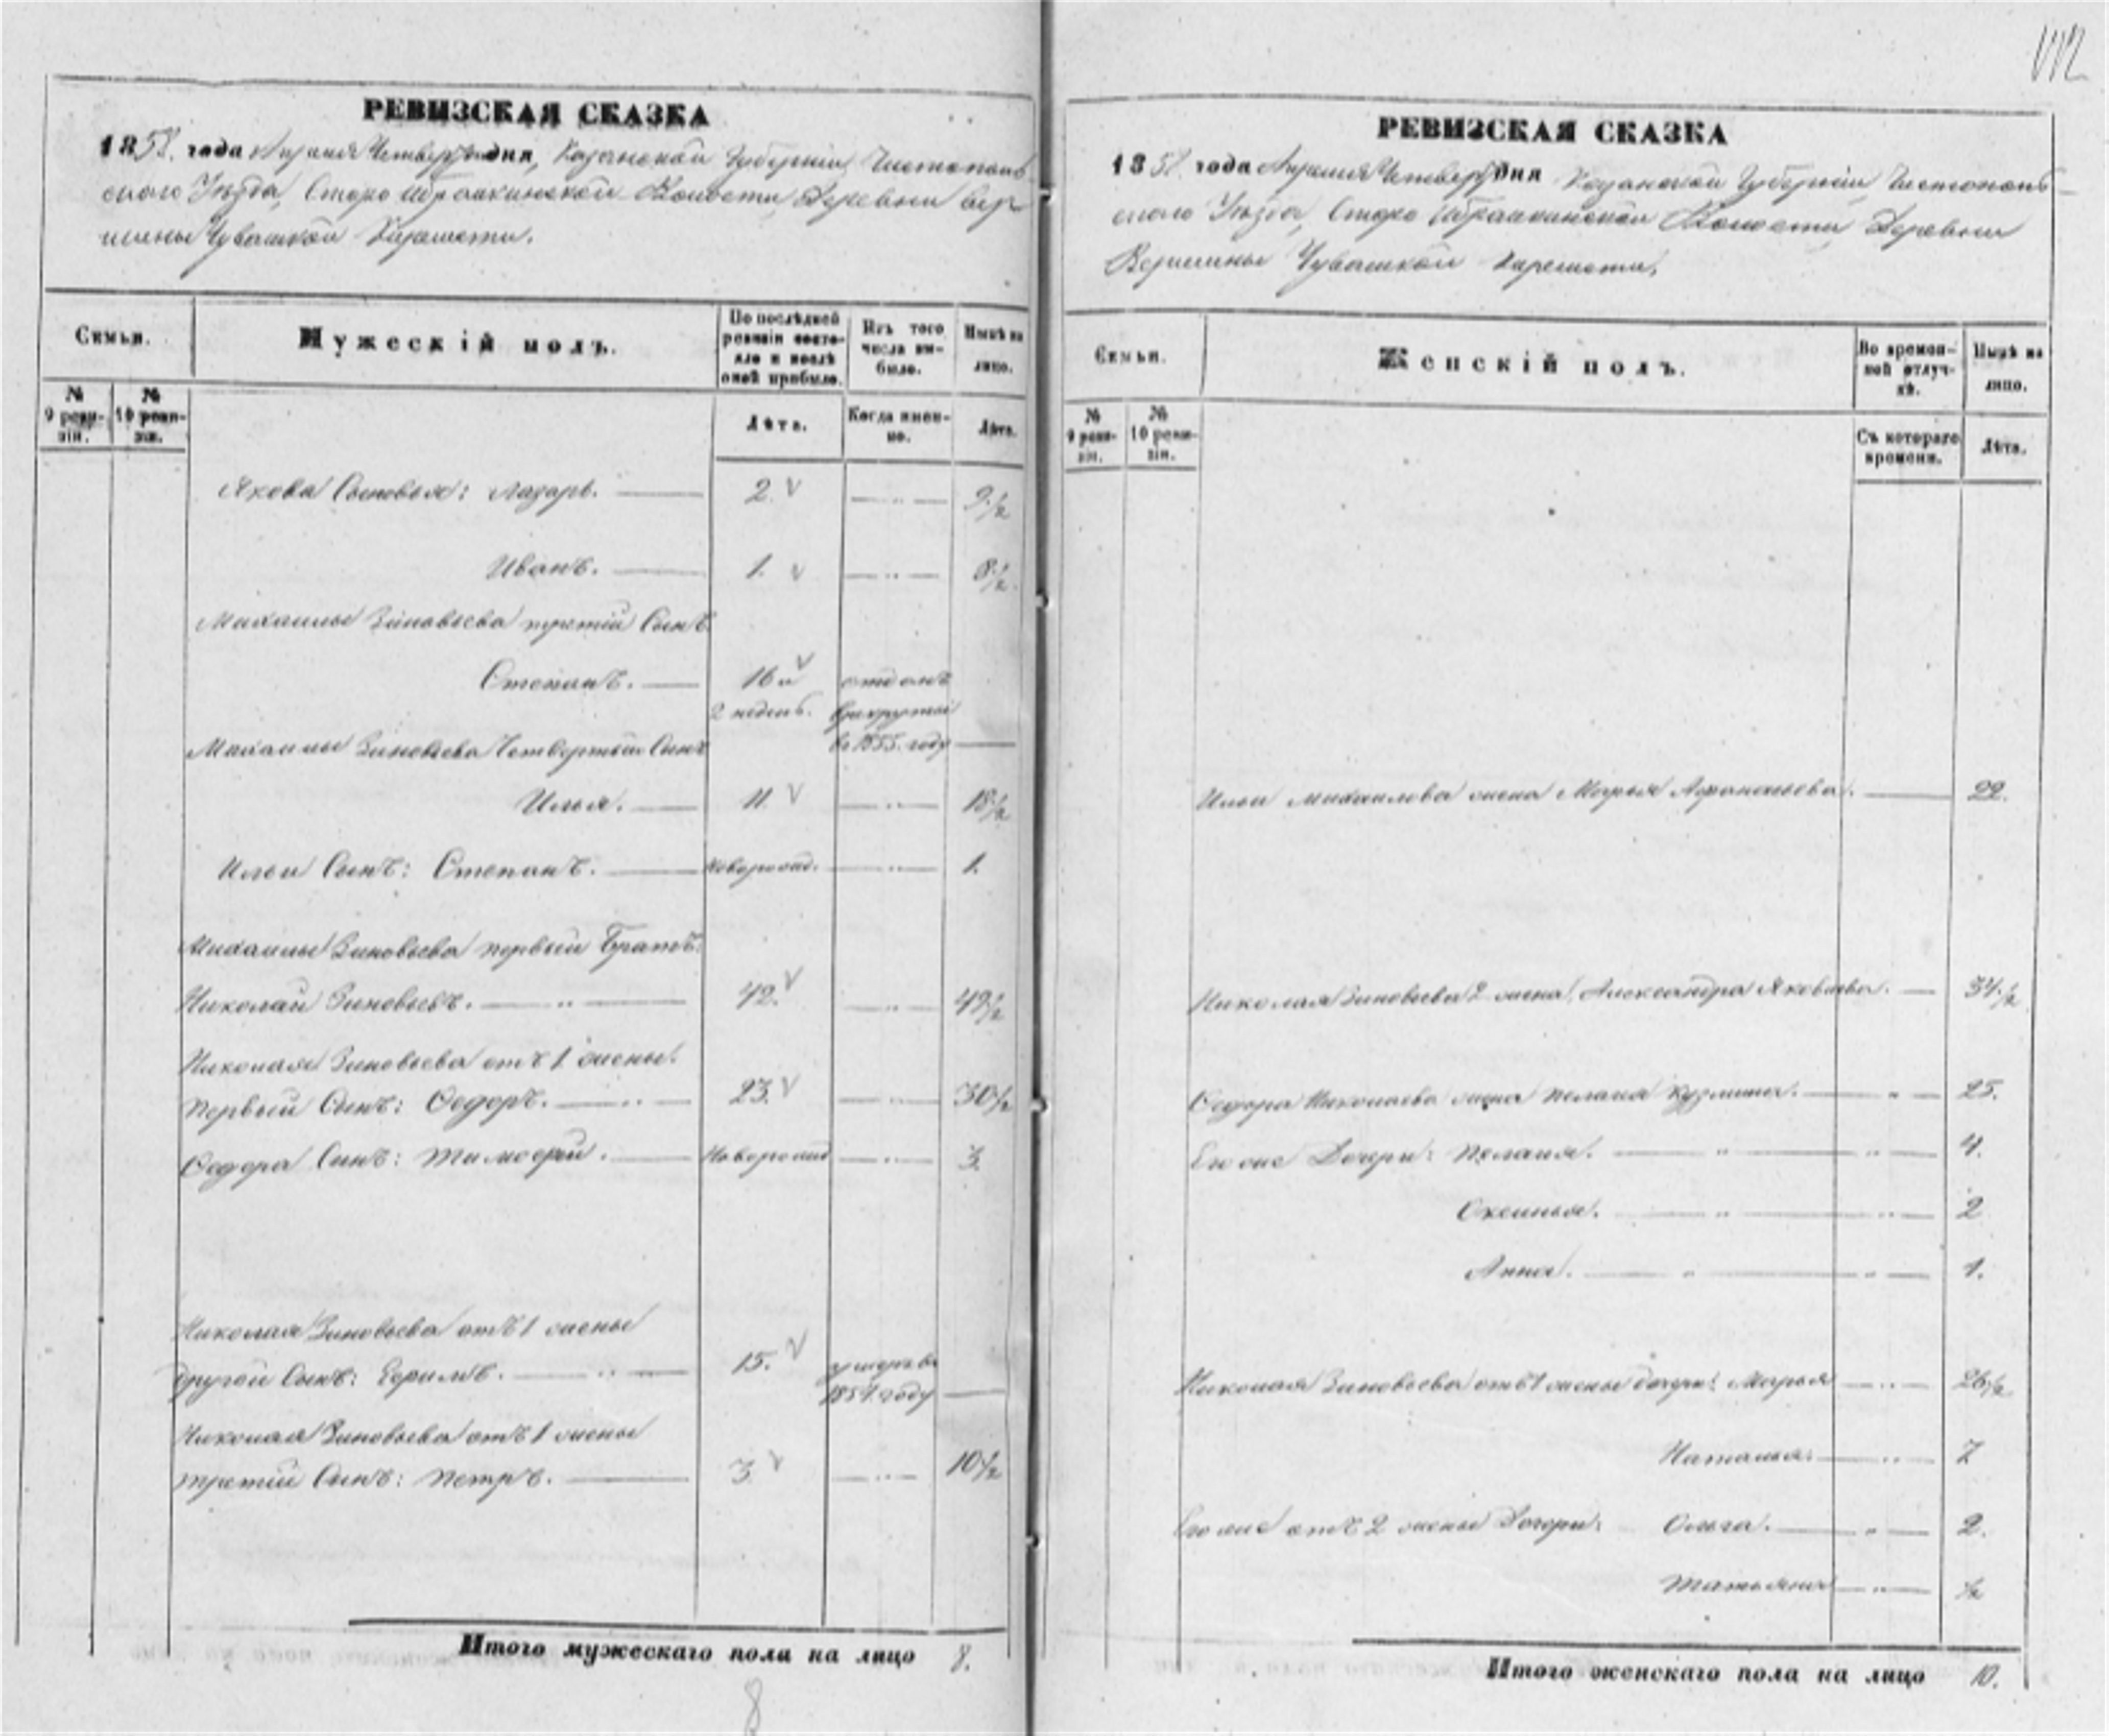 РЕВИЗСКАЯ СКАЗКА
1858. года Апреля Четвертаго дня, Казанской Губернiи, Чистополь
скаго Уѣзда, Старо Ибрайкинской Волости Деревни Вер
шины Чувашской
Семьи.
Мужескiй полъ.
По послѣдней ревизiи состояло и послѣ оной прибыло.
Изъ того числа выбыло.
Нынѣ на лицо.
№ 9 ревизiи.
№ 10 ревизiи.
Лѣта.
Когда именно.
Лѣта.
Якова Сыновья: Лазарь. 2. 9½
Иванъ. 1. 8½
Михаилы Зиновьева третiй Сынъ
Степанъ. 16 и отданъ
2 недѣль. в рекруты
в 1855. году
Михаилы Зиновьева Четвертый Сынъ
Илья. 11. 18½
Ильи Сынъ: Степанъ. Новорожд. 1.
Михаилы Зиновьева первый Братъ:
Николай Зиновьевъ. 42. 49½
Николая Зиновьева отъ 1 жены.
Первый Сынъ: Ѳедоръ. 23. 30½
Ѳедора Сынъ: Тимоѳей. Новорожд 3.
Николая Зиновьева отъ 1 жены
другой Сынъ: Ефимъ. 15. умеръ в
1854. году
Николая Зиновьева отъ 1 жены
третiй Сынъ: Петръ. 3. 10½
Итого мужескаго пола на лицо 8.
8
112
РЕВИЗСКАЯ СКАЗКА
1858. года Апреля Четвертаго дня Казанской Губернiи, Чистополь-
скаго Уѣзда, Старо Ибрайкинской Волости, Деревни
Вершины Чувашской
Семьи.
Женскiй полъ.
Во временной отлучкѣ.
Нынѣ на лицо.
№ 9 ревизiи.
№ 10 ревизiи.
Съ котораго времени.
Лѣта.
Ильи Михаилова жена Марья Афанасьева. 22.
Николая Зиновьева 2 жена, Александра Яковлева. 34½
Ѳедора Николаева жена Пелагея Кузмина. 25.
Его же Дочери: Пелагея. 4.
Оксинья. 2
Анна. 1.
Николая Зиновьева отъ 1 жены дочери: Марья 26½
Наталья. 7
Его же отъ 2 жены Дочери: Ольга. 2.
Татьяна ½
Итого женскаго пола на лицо 10.